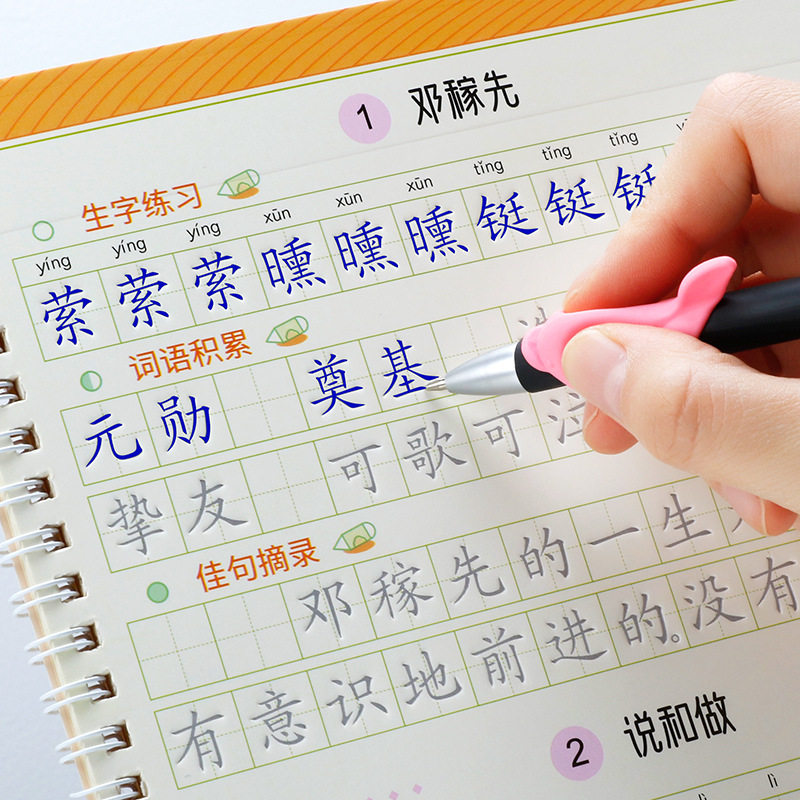 1 邓稼先
生字练习
yíng yíng yíng xūn xūn xūn tǐng tǐng tǐng
萦 萦 萦 曛 曛 曛 铤 铤 铤
词语积累
元勋 奠基
挚友 可歌可泣
佳句摘录
邓稼先的一生
有意识地前进的。没有
2 说和做
lì lì